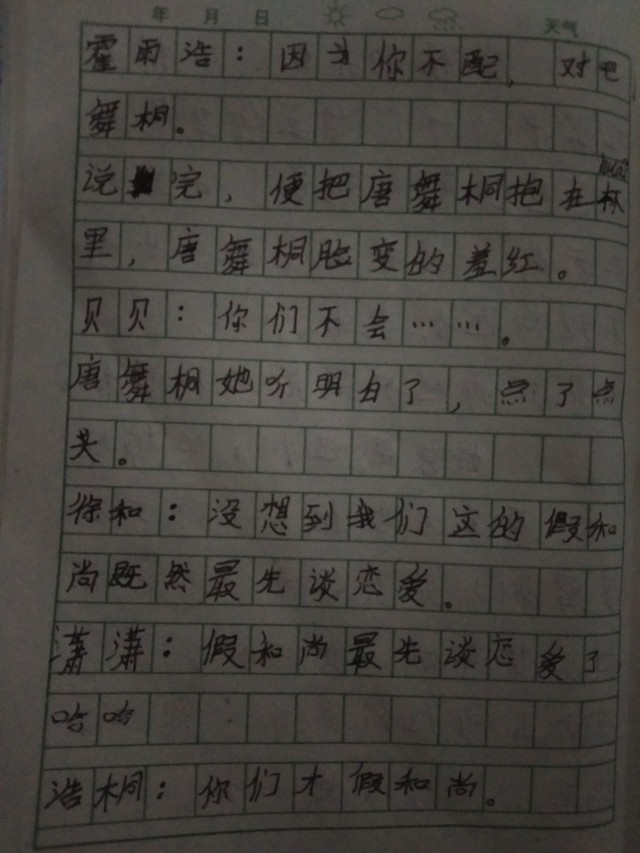 年 月 日 天气
霍雨浩：因为你不配，对吧
舞桐。
说完，便把唐舞桐抱在怀
里，唐舞桐脸变的羞红。
贝贝：你们不会……。
唐舞桐她听明白了，点了点
头。
徐和：没想到我们这的假和
尚既然最先谈恋爱。
潇潇：假和尚最先谈恋爱了
哈哈
浩桐：你们才假和尚。